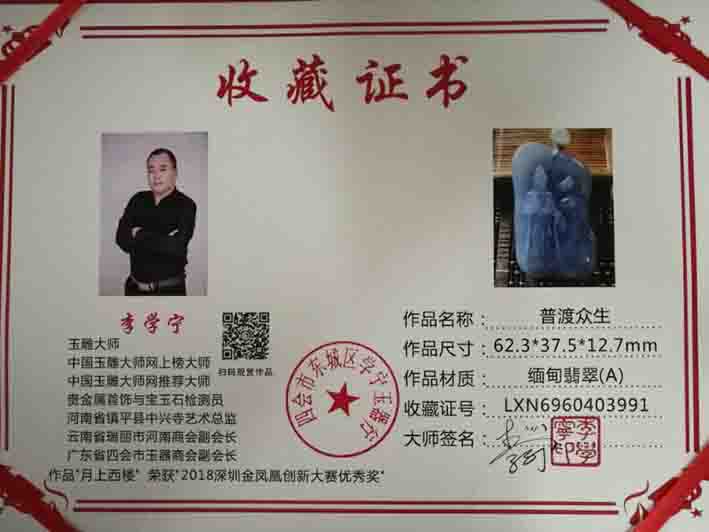 收藏证书
李学宁
玉雕大师
中国玉雕大师网上榜大师
中国玉雕大师网推荐大师
贵金属首饰与宝玉石检测员
河南省镇平县中兴寺艺术总监
云南省瑞丽市河南商会副会长
广东省四会市玉器商会副会长
作品"月上西楼" 荣获"2018深圳金凤凰创新大赛优秀奖"
扫码观赏作品
四会市东城区学宁玉器行
作品名称: 普渡众生
作品尺寸: 62.3*37.5*12.7mm
作品材质: 缅甸翡翠(A)
收藏证号: LXN6960403991
大师签名:
李學寧印